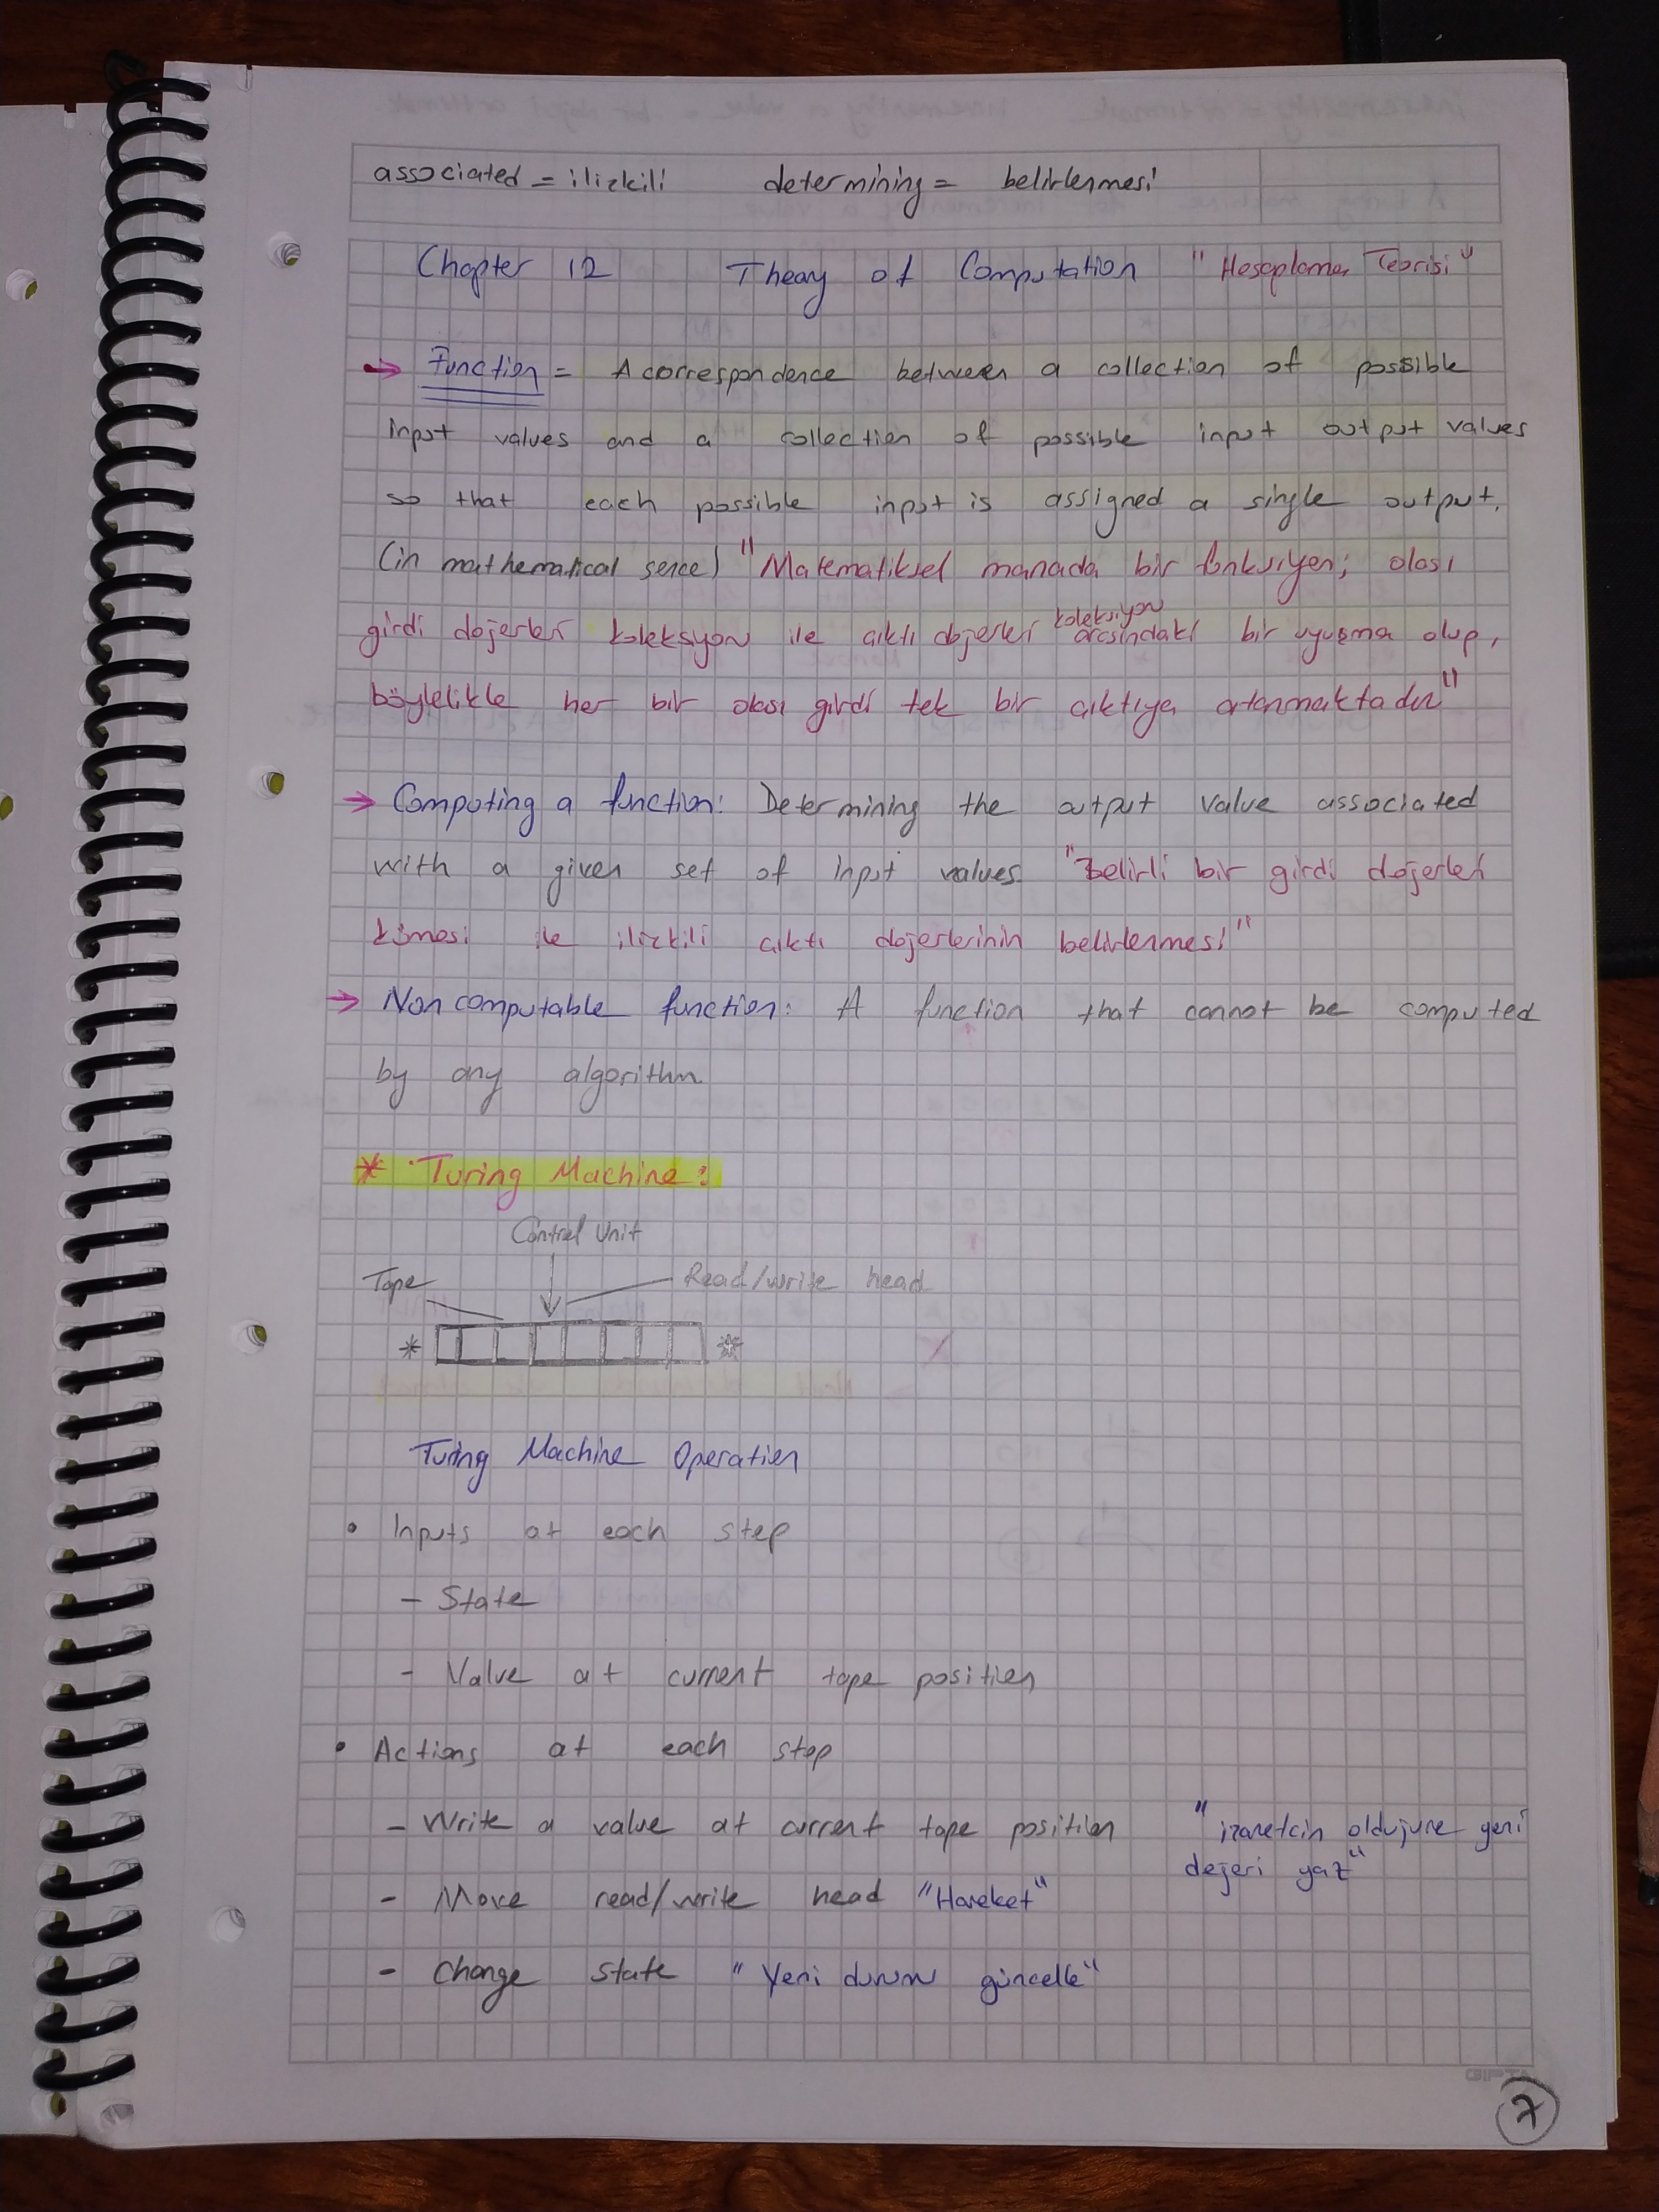 associated = ilişkili determining = belirlenmesi
Chapter 12 Theory of Computation "Hesaplama Teorisi"
→ Function = A correspondence between a collection of possible
input values and a collection of possible input output values
so that each possible input is assigned a single output.
(in mathematical sense) "Matematiksel manada bir fonksiyon; olası
girdi değerler koleksiyon ile çıktı değerler koleksiyon arasındaki bir uyuşma olup,
böylelikle her bir olası girdi tek bir çıktıya atanmaktadır"
→ Computing a function: Determining the output value associated
with a given set of input values "Belirli bir girdi değerler
kümesi ile ilişkili çıktı değerlerinin belirlenmesi"
→ Non computable function: A function that cannot be computed
by any algorithm
* Turing Machine:
Control Unit
Tape Read/write head
* *
Turing Machine Operation
• Inputs at each step
- State
- Value at current tape position
• Actions at each step
- Write a value at current tape position "işaretçin olduğu yere yeni
değeri yaz"
- Move read/write head "Hareket"
- Change state "Yeni durum güncelle"
7